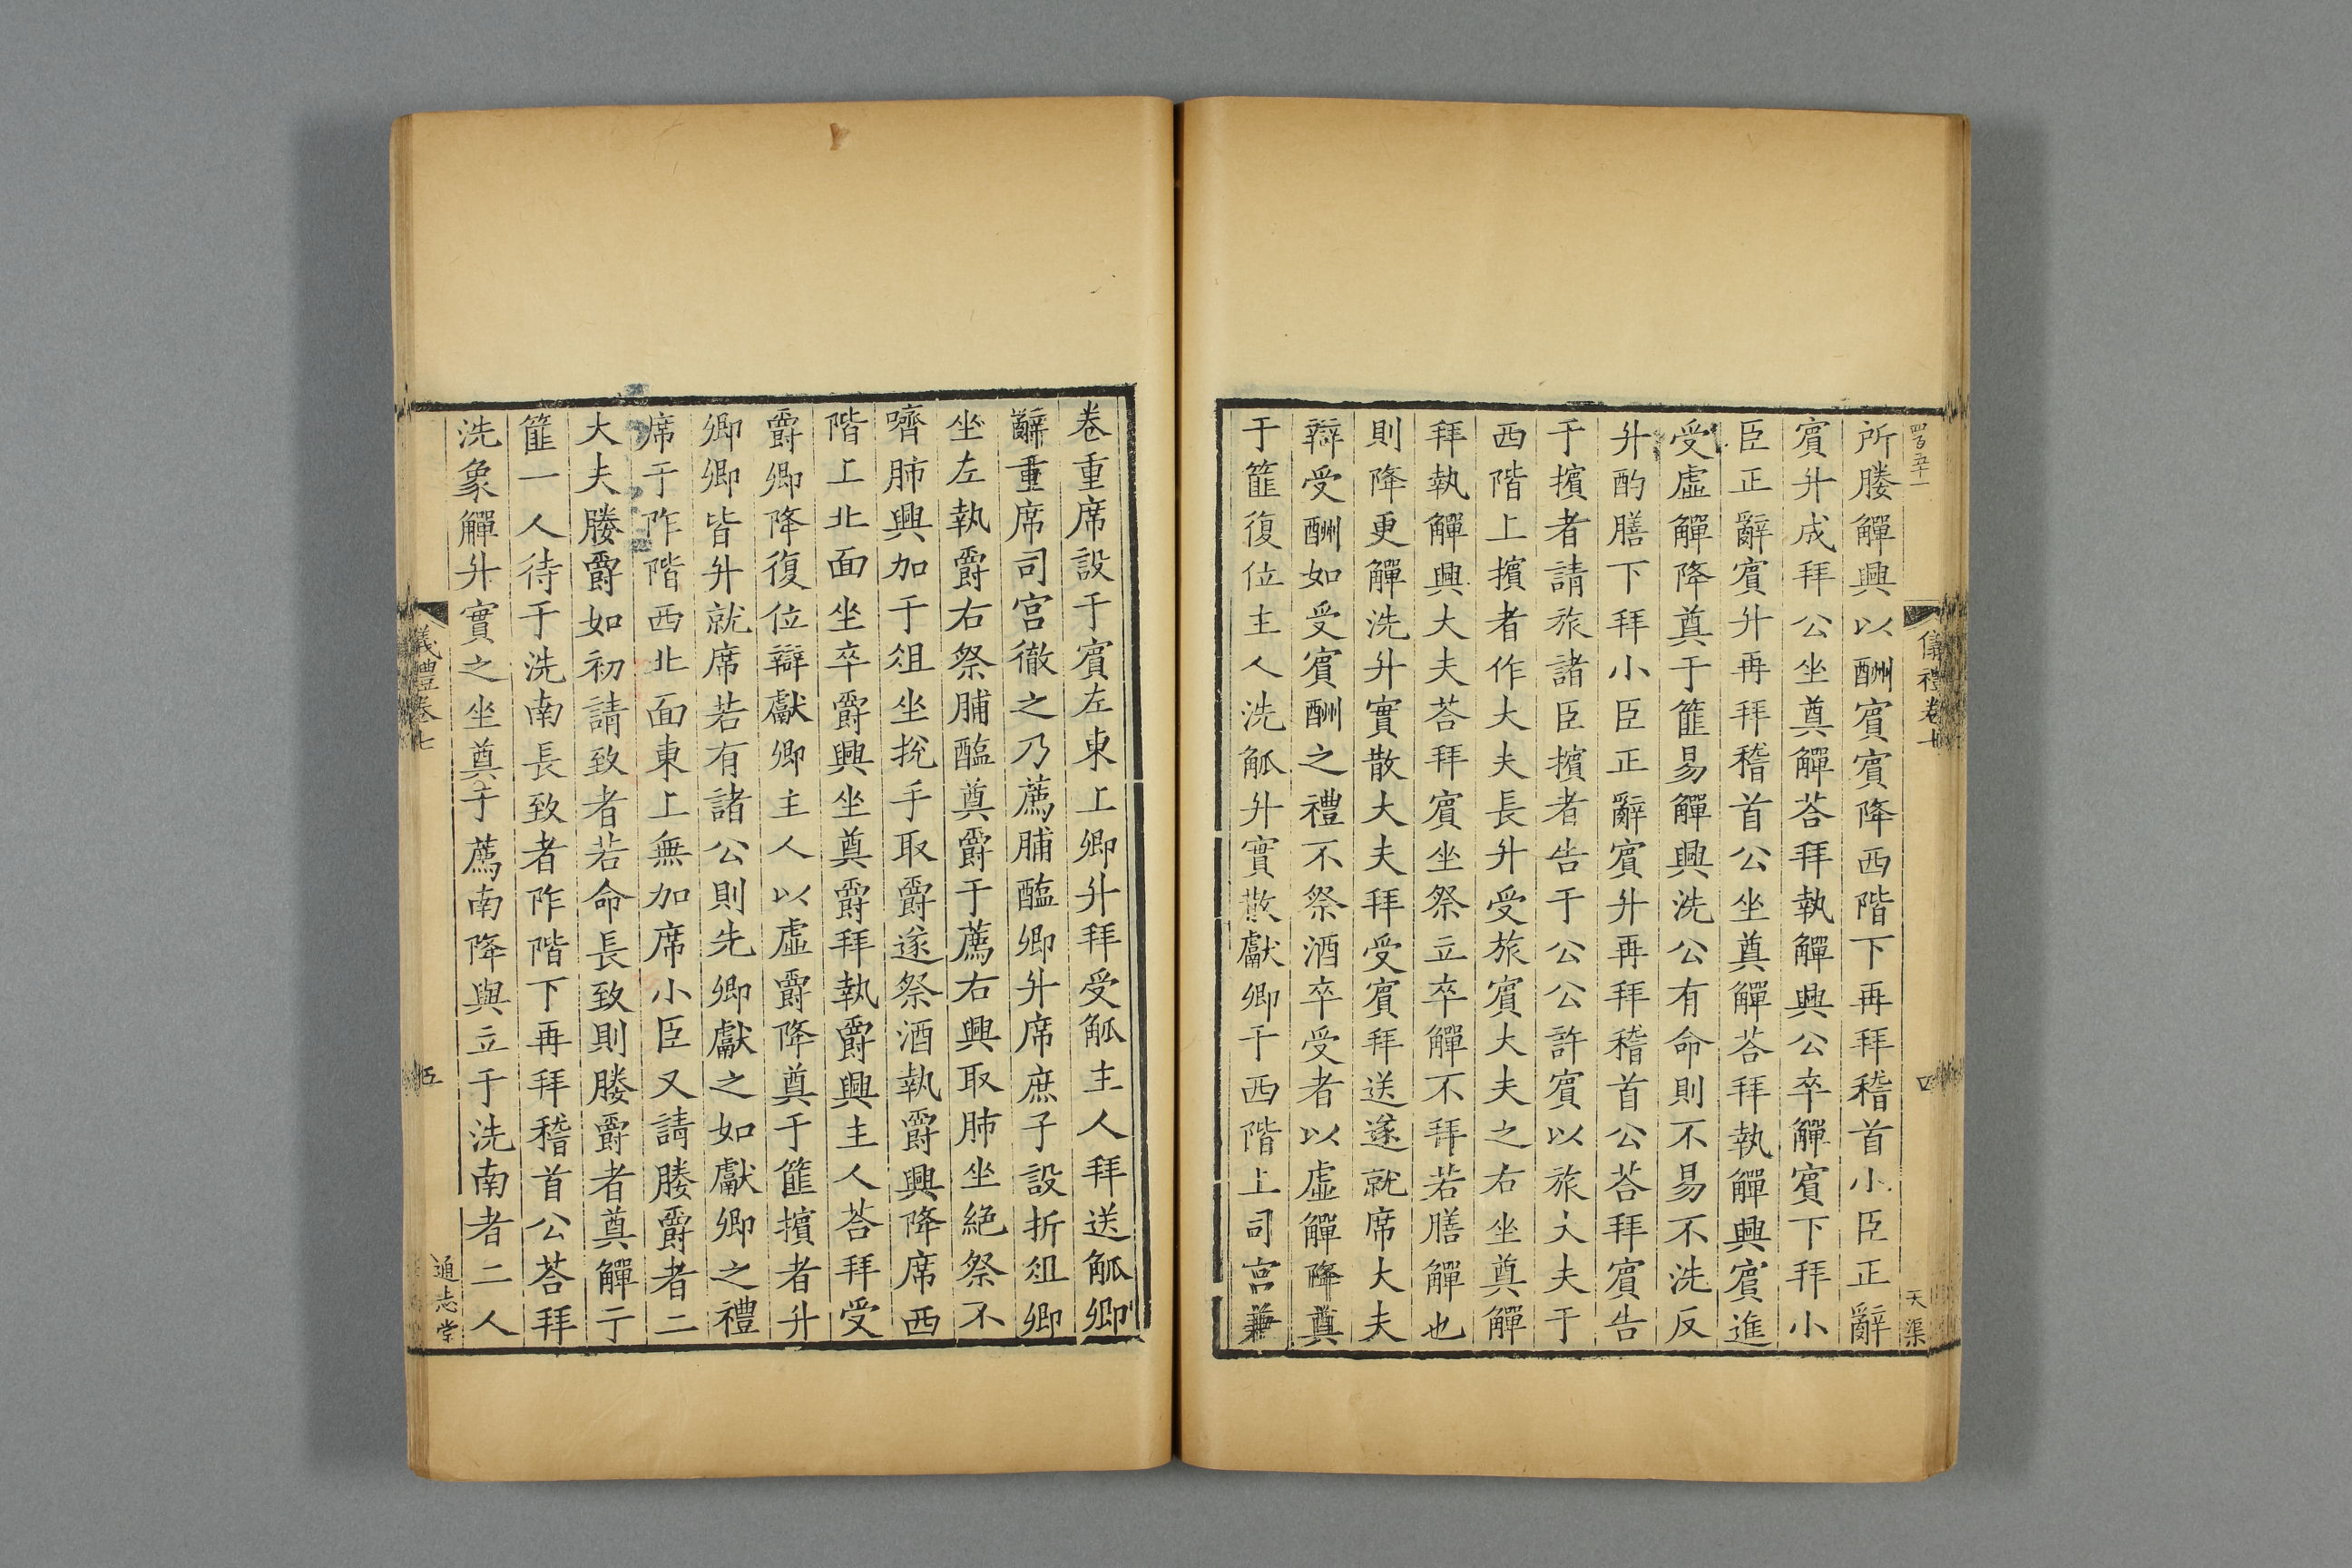 四百五十一
儀禮卷七
四
天渠
所媵觶興以酬賓賓降西階下再拜稽首小臣正辭
賓升成拜公坐奠觶荅拜執觶興公卒觶賓下拜小
臣正辭賓升再拜稽首公坐奠觶荅拜執觶興賓進
受虛觶降奠于篚易觶興洗公有命則不易不洗反
升酌膳下拜小臣正辭賓升再拜稽首公荅拜賓告
于擯者請旅諸臣擯者告于公公許賓以旅大夫于
西階上擯者作大夫長升受旅賓大夫之右坐奠觶
拜執觶興大夫荅拜賓坐祭立卒觶不拜若膳觶也
則降更觶洗升實散大夫拜受賓拜送遂就席大夫
辯受酬如受賓酬之禮不祭酒卒受者以虛觶降奠
于篚復位主人洗觚升實散獻卿于西階上司宮兼
卷重席設于賓左東上卿升拜受觚主人拜送觚卿
辭重席司宮徹之乃薦脯醢卿升席庶子設折俎卿
坐左執爵右祭脯醢奠爵于薦右興取肺坐絕祭不
嚌肺興加于俎坐挩手取爵遂祭酒執爵興降席西
階上北面坐卒爵興坐奠爵拜執爵興主人荅拜受
爵卿降復位辯獻卿主人以虛爵降奠于篚擯者升
卿卿皆升就席若有諸公則先卿獻之如獻卿之禮
席于阼階西北面東上無加席小臣又請媵爵者二
大夫媵爵如初請致者若命長致則媵爵者奠觶于
篚一人待于洗南長致者阼階下再拜稽首公荅拜
洗象觶升實之坐奠于薦南降與立于洗南者二人
儀禮卷七
五
通志堂